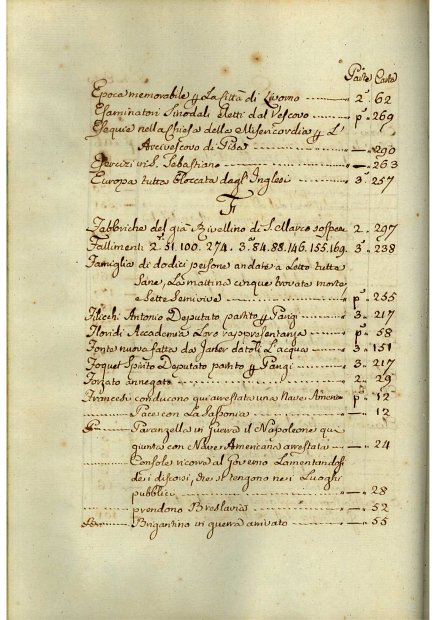 Parte Carte
Epoca memorabile p La Città di Livorno 2ª 62
Esaminatori Sinodali eletti dal Vescovo pª 269
Esequie nella Chiesa della Misericordia p L'
Arcivescovo di Pisa — 290
Esercizi in S. Sebastiano — 263
Europa tutta bloccata dagl' Inglesi 3ª 257
F
Fabbriche del già Rivellino di S. Marco sospese 2. 297
Fallimenti 2ª 51. 100. 274. 3ª 84. 88. 146. 155. 169. 3ª 238
Famiglia di dodici persone andate a Letto tutta
sane, La mattina cinque trovate morte
e Sette Semivive pª 255
Flicchi Antonio Deputato partito p Parigi 3. 217
Floridi Accademia Loro rappresentanza pª 58
Fonte nuova fatta da datoli L'acqua 3. 151
Foquet Spirito Deputato partito p Parigi 3. 217
Forzato annegato 2. 29
Francesi conducono qui arrestata una Nave Americ pª 12
Pace con La Sassonia — 12
Paranzella in Guerra il Napoleone qui
giunta con Nave Americana arrestata — 24
Console ricorre al Governo Lamentandosi
dei discorsi, che si tengono nei Luoghi
pubblici — 28
prendono Breslavia — 52
Brigantino in guerra arrivato — 55